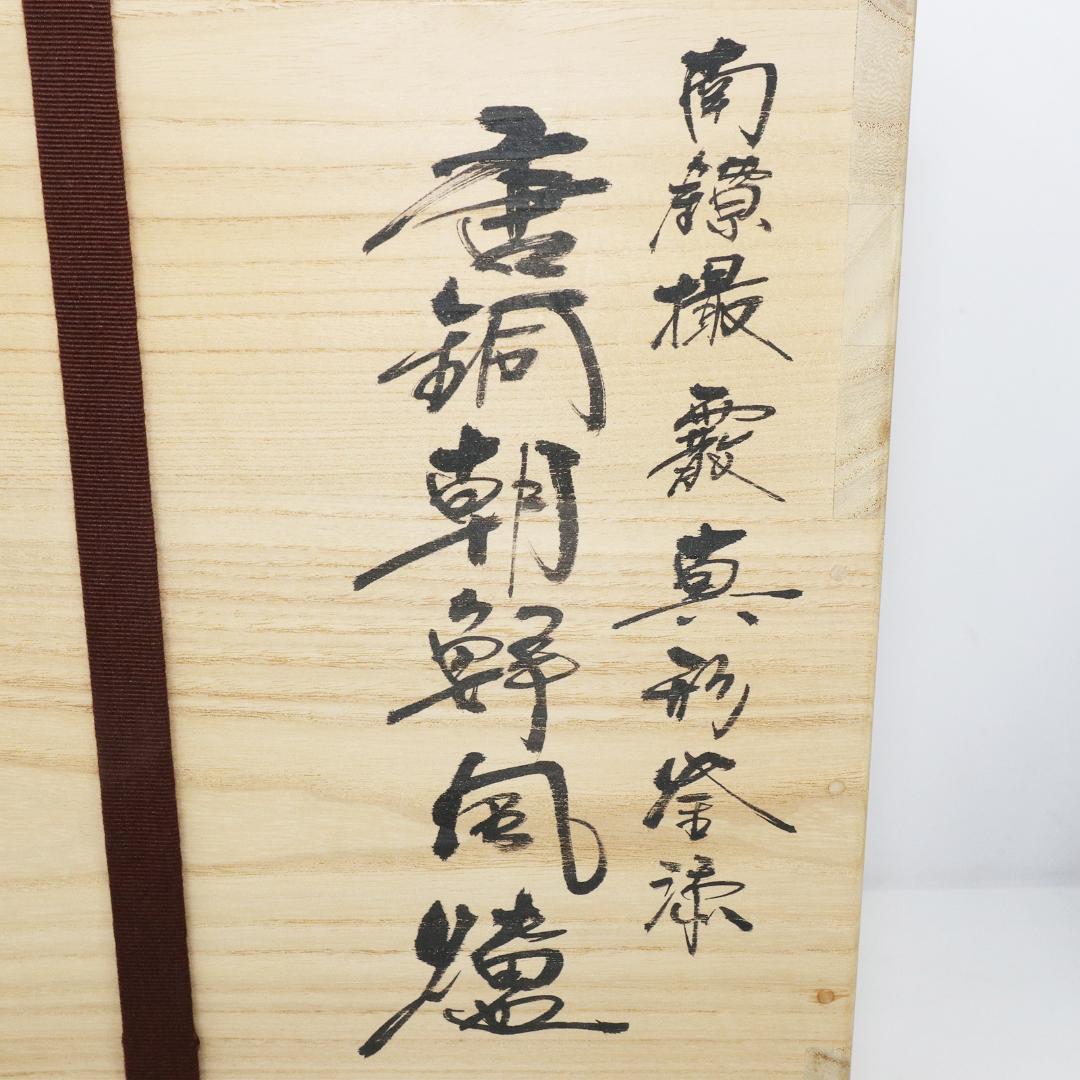 南鐐撮 霰真形釜添
唐銅朝鮮風爐